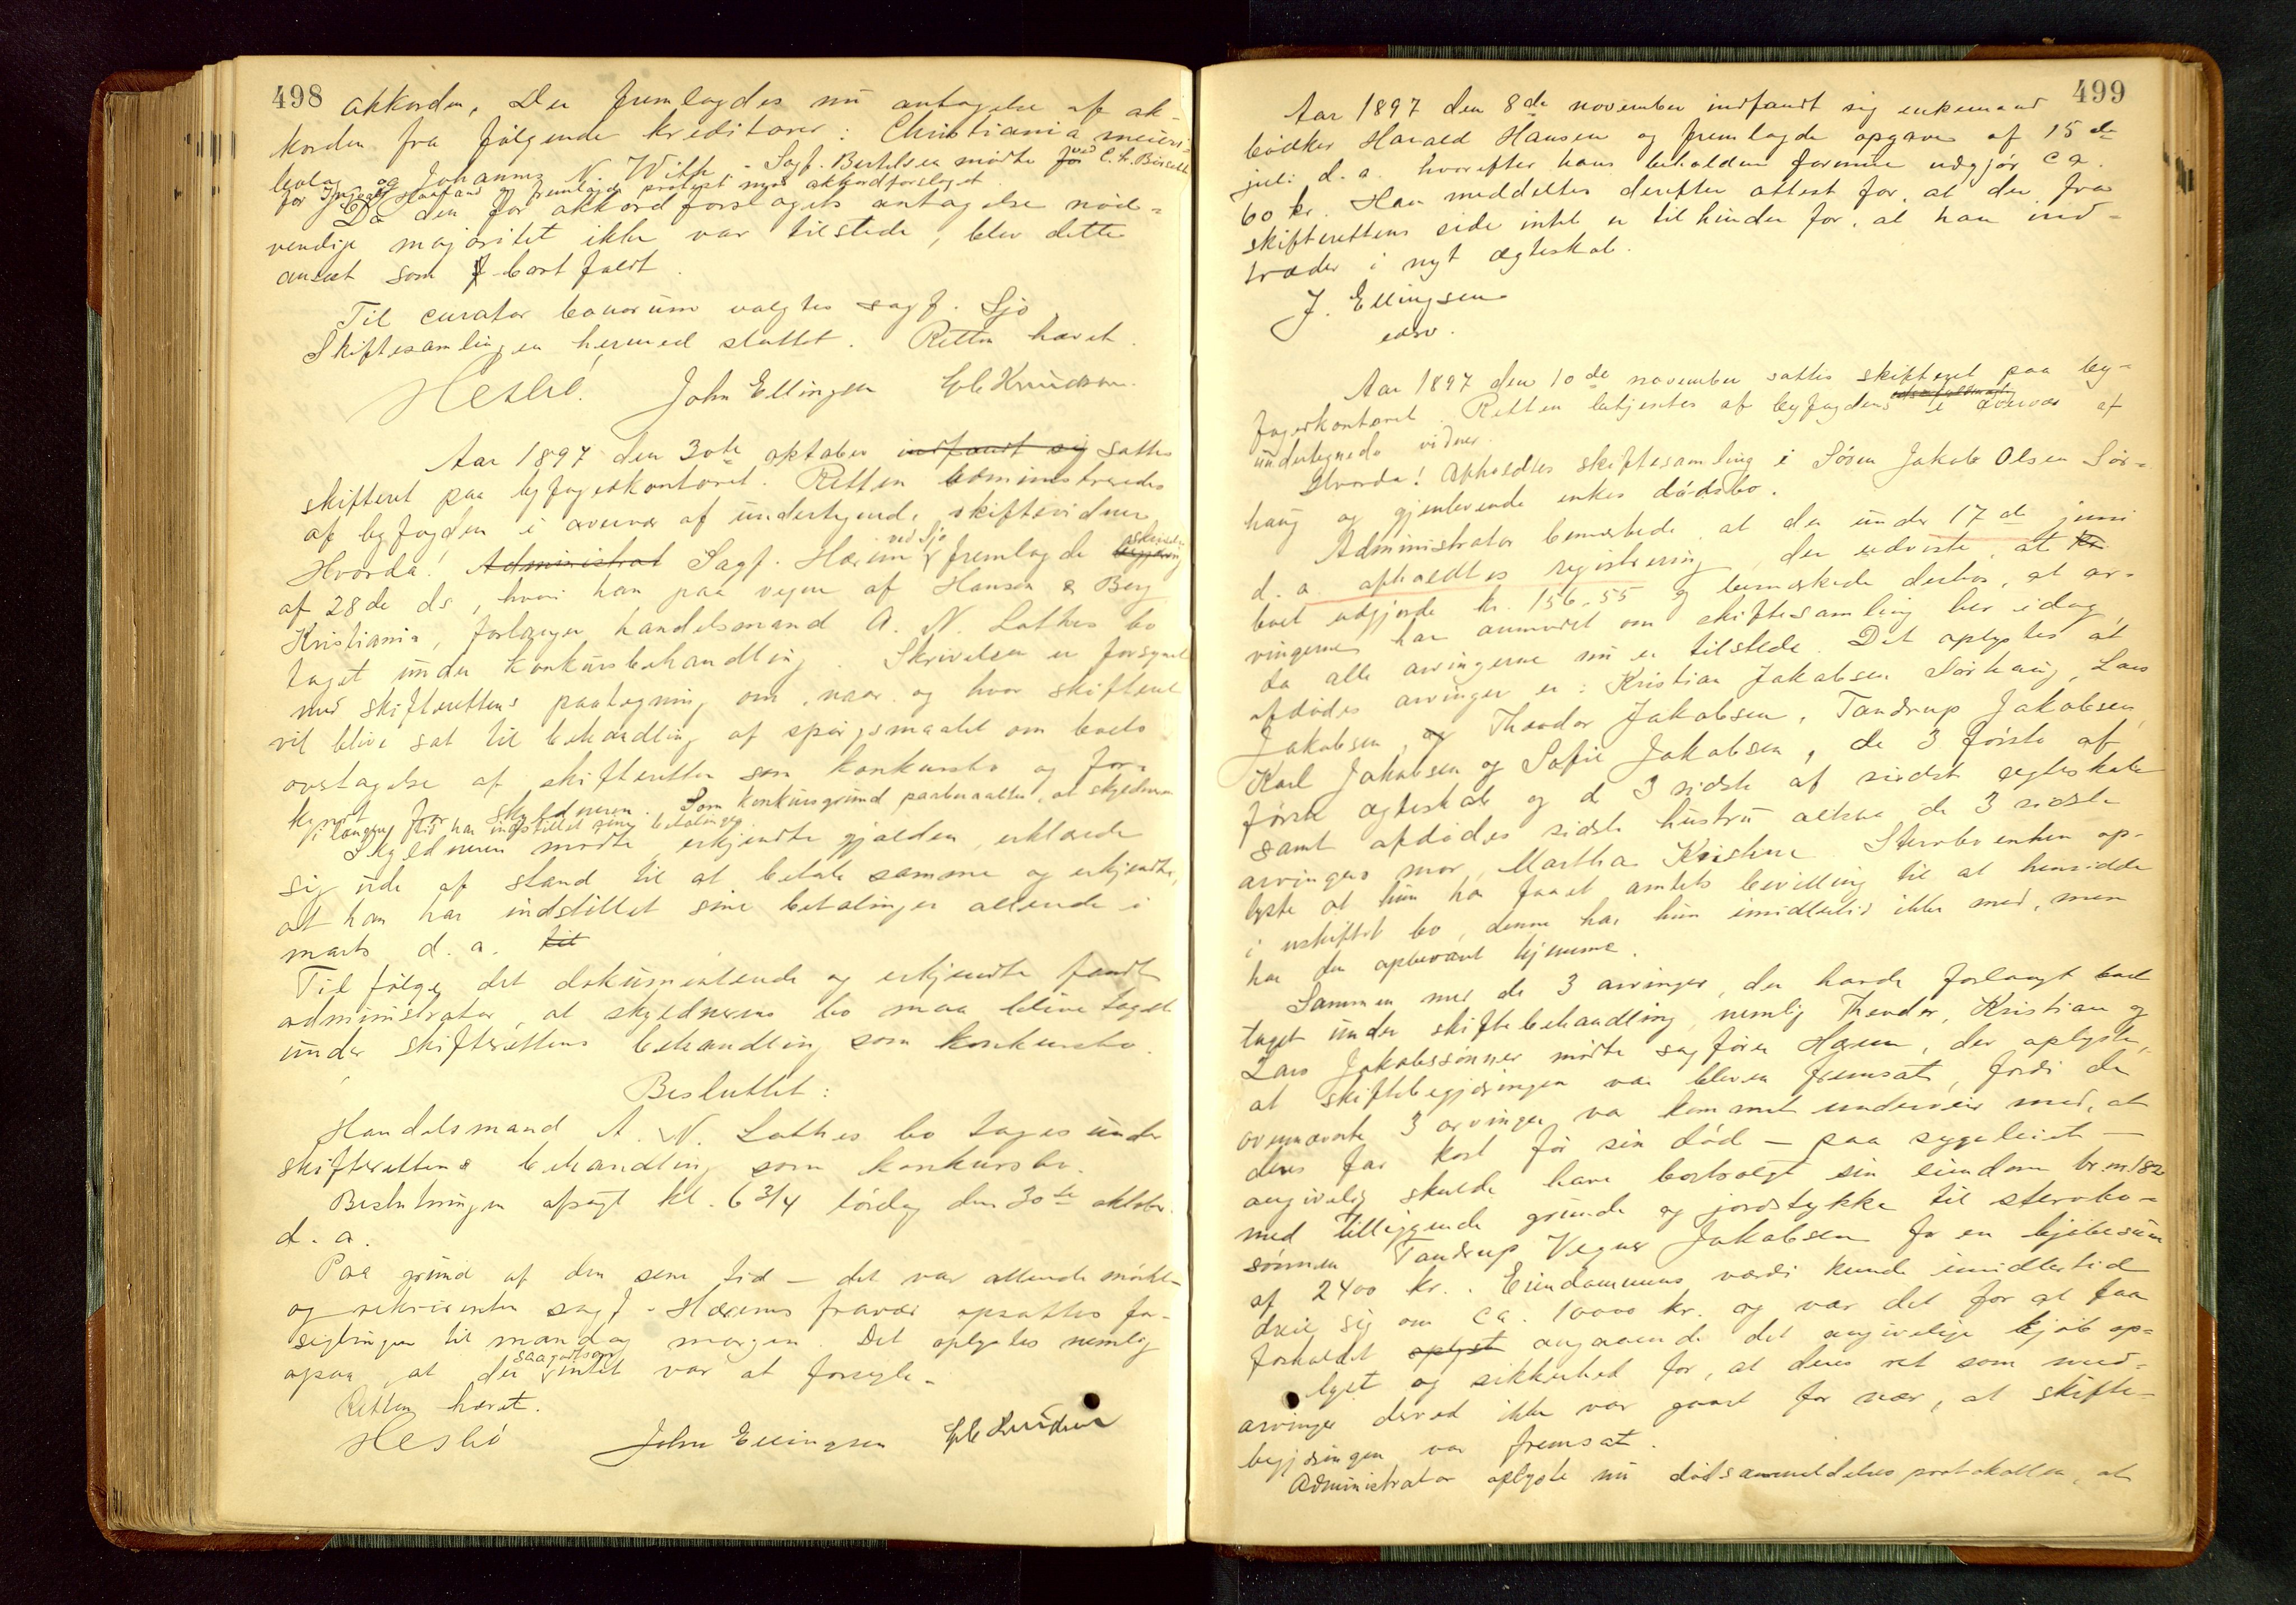 498
akkorden. Der fremlagdes nu antagelse af ak-
korden fra følgende kreditorer: Christiania meieri-
bolag og Johannes N. Witth. Sagf. Bertelsen mødte ved C. Chr.
for og fremlagde protest mod akkordforslaget.
Da den for akkordforslagets antagelse nød-
vendige majoritet ikke var tilstede, blev dette
anseet som bortfaldt.
Til curator bonorum valgtes sagf. Sjo
Skiftesamlingen hermed sluttet. Retten hævet.
Hesló. John Ellingsen Knudsen.
Aar 1897 den 30te oktober indfandt sig sattes
skifteret paa byfogedkontoret. Retten administreredes
af byfogden i overvær af undertegnede skiftevidner
Hvorda! Administrat Sagf. Hærem ved Sjo fremlagde skrivelse
af 28de ds, hvori han paa vegne af Hansen & Berg
Kristiania, forlanger handelsmand A. N. Lothes bo
taget under konkursbehandling. Skrivelsen er forsynet
med skifterettens paategning om, naar og hvor skifteret
vil blive sat til behandling af spørgsmaalet om boets
overtagelse af skifteretten som konkursbo og for-
kyndt for skyldneren. Som konkursgrund paaberaabtes, at skyldneren
i længere tid har indstillet sine betalinger.
Skyldneren mødte, erkjendte gjælden, erklærede
sig ude af stand til at betale samme og erkjendte,
at han har indstillet sine betalinger allerede i
marts d. a. til
Til følge det dokumenterede og erkjendte fandt
administrator, at skyldnerens bo maa blive taget
under skifterettens behandling som konkursbo.
Besluttet:
Handelsmand A. N. Lothes bo tages under
skifterettens behandling som konkursbo.
Beslutningen afsagt kl. 6 3/4 lørdag den 30te oktober
d. a.
Paa grund af den sene tid – det var allerede mørkt –
og rekvirenten sagf. Hærems fravær opsattes for-
seglingen til mandag morgen. Det oplystes nemlig
ogsaa, at der saagodtsom intet var at forsegle.
Retten hævet.
Hesló John Ellingsen Knudsen
499
Aar 1897 den 8de november indfandt sig enkemand
bødker Harald Hansen og fremlagde opgave af 15de
juli d. a. hvorefter hans beholdne formue udgjør ca.
60 kr. Han meddeltes derefter attest for, at der fra
skifterettens side intet er til hinder for, at han ind-
træder i nyt ægteskab.
J. Ellingsen
edsv.
Aar 1897 den 10de november sattes skifteret paa by-
fogedkontoret. Retten betjentes af byfogdens edsv. fuldmægtig i overvær af
undertegnede vidner.
Hvorda! Apholdtes skiftesamling i Søren Jakob Olsen Sør-
haug og gjenlevende enkes dødsbo.
Administrator bemærkede, at der under 17de juni
d. a. apholdtes registrering, der udviste, at kr
boet udgjorde kr. 156.55 og bemærkede derhos, at ar-
vingerne har anmodet om skiftesamling her idag,
da alle arvingerne nu er tilstede. Det oplystes at
afdødes arvinger er: Kristian Jakobsen Sørhaug, Lars
Jakobsen, og Theodor Jakobsen, Tandrup Jakobsen,
Karl Jakobsen og Sofie Jakobsen, de 3 første af
første ægteskab og de 3 sidste af sidste ægteskab
samt afdødes sidste hustru altsaa de 3 sidste
arvingers mor, Martha Kristine Stervboenken op-
lyste at hun har faaet amtets bevilling til at hensidde
i uskiftet bo, denne har hun imidlertid ikke med, men
har den opbevaret hjemme.
Sammen med de 3 arvinger, der havde forlangt boet
taget under skiftebehandling, nemlig Theodor, Kristian og
Lars Jakobssønner mødte sagfører Hærem, der oplyste,
at skiftebegjæringen var bleven fremsat, fordi de
ovennævnte 3 arvinger var kommet underveir med, at
deres far kort før sin død – paa sygeleiet –
angivelig skulde have bortsolgt sin eiendom br. n. 182
med tilliggende grunde og jordstykke til stervbo-
sønnen Tandrup Vegner Jakobsen for en kjøbesum
af 2400 kr. Eiendommens værdi kunde imidlertid
dreie sig om ca. 10000 kr. og var det for at faa
forholdet oplyst angaaende det angivelige kjøb op-
lyst og sikkerhed for, at deres ret som med-
arvinger derved ikke var gaaet for nær, at skifte-
begjæringen var fremsat.
Administrator oplyste nu dødsanmeldelsesprotokollen, at